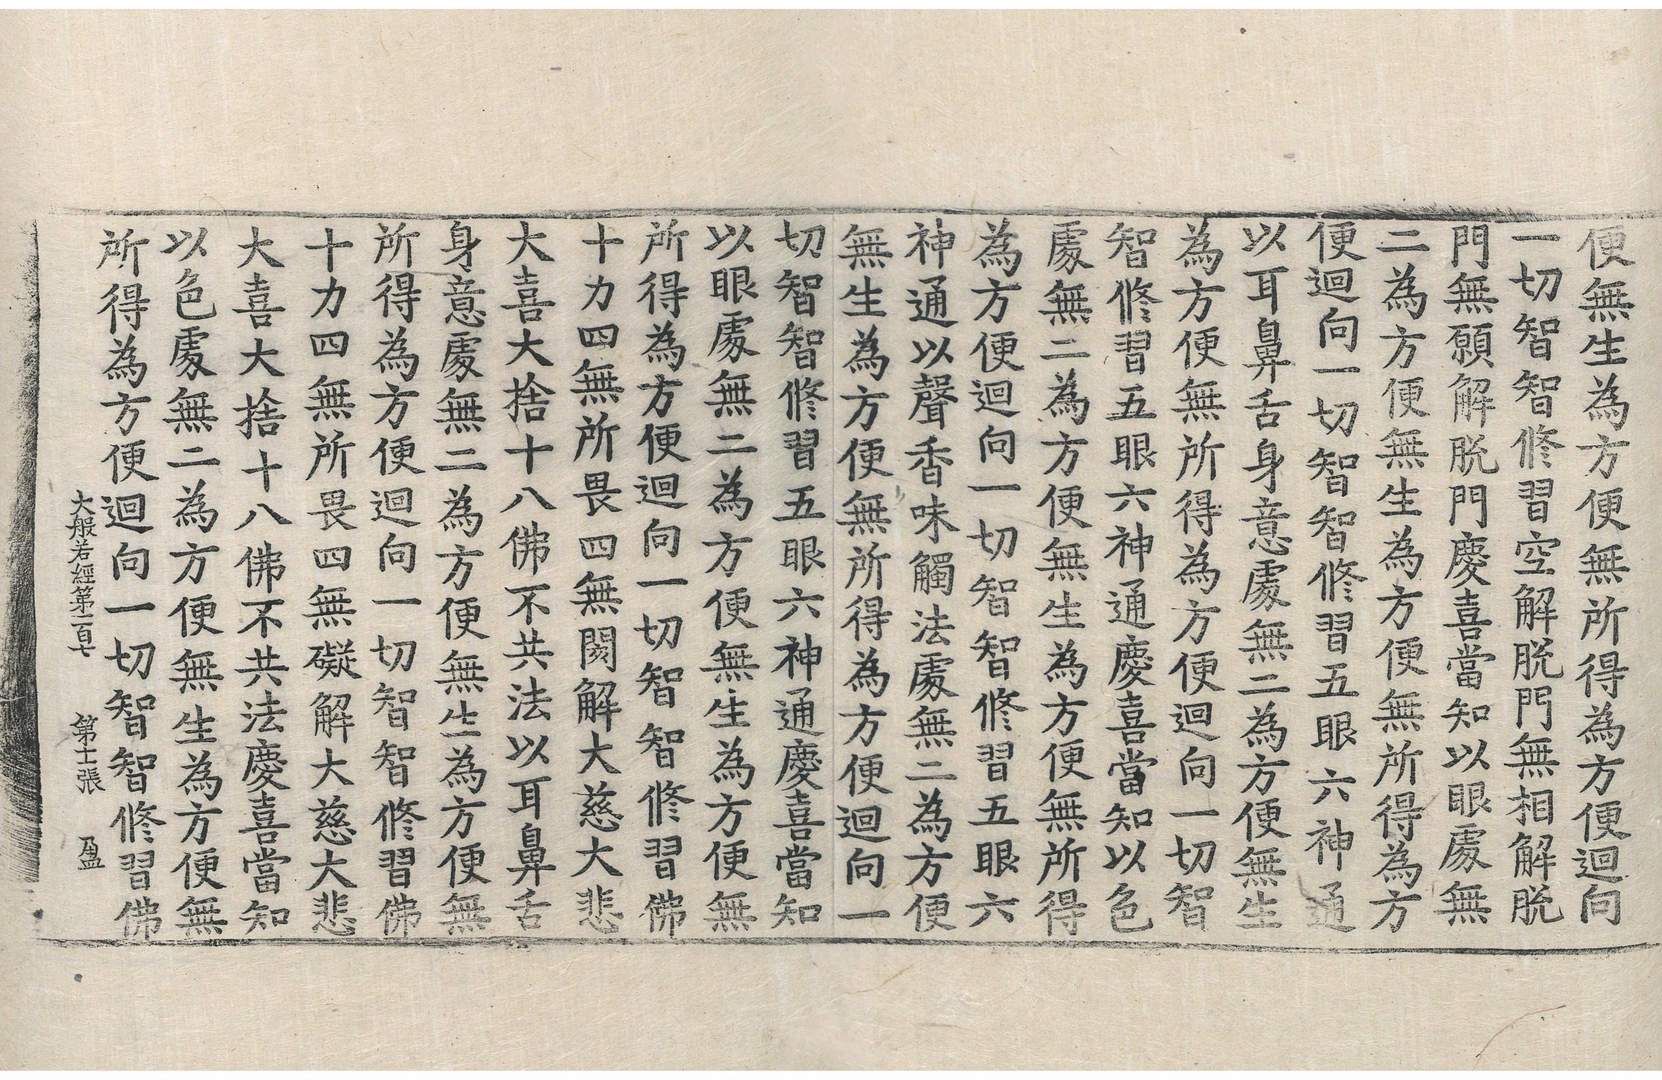 便無生為方便無所得為方便迴向
一切智智修習空解脱門無相解脱
門無願解脱門慶喜當知以眼處無
二為方便無生為方便無所得為方
便迴向一切智智修習五眼六神通
以耳鼻舌身意處無二為方便無生
為方便無所得為方便迴向一切智
智修習五眼六神通慶喜當知以色
處無二為方便無生為方便無所得
為方便迴向一切智智修習五眼六
神通以聲香味觸法處無二為方便
無生為方便無所得為方便迴向一
切智智修習五眼六神通慶喜當知
以眼處無二為方便無生為方便無
所得為方便迴向一切智智修習佛
十力四無所畏四無閡解大慈大悲
大喜大捨十八佛不共法以耳鼻舌
身意處無二為方便無生為方便無
所得為方便迴向一切智智修習佛
十力四無所畏四無礙解大慈大悲
大喜大捨十八佛不共法慶喜當知
以色處無二為方便無生為方便無
所得為方便迴向一切智智修習佛
大般若經第一百七 第十一張 盈